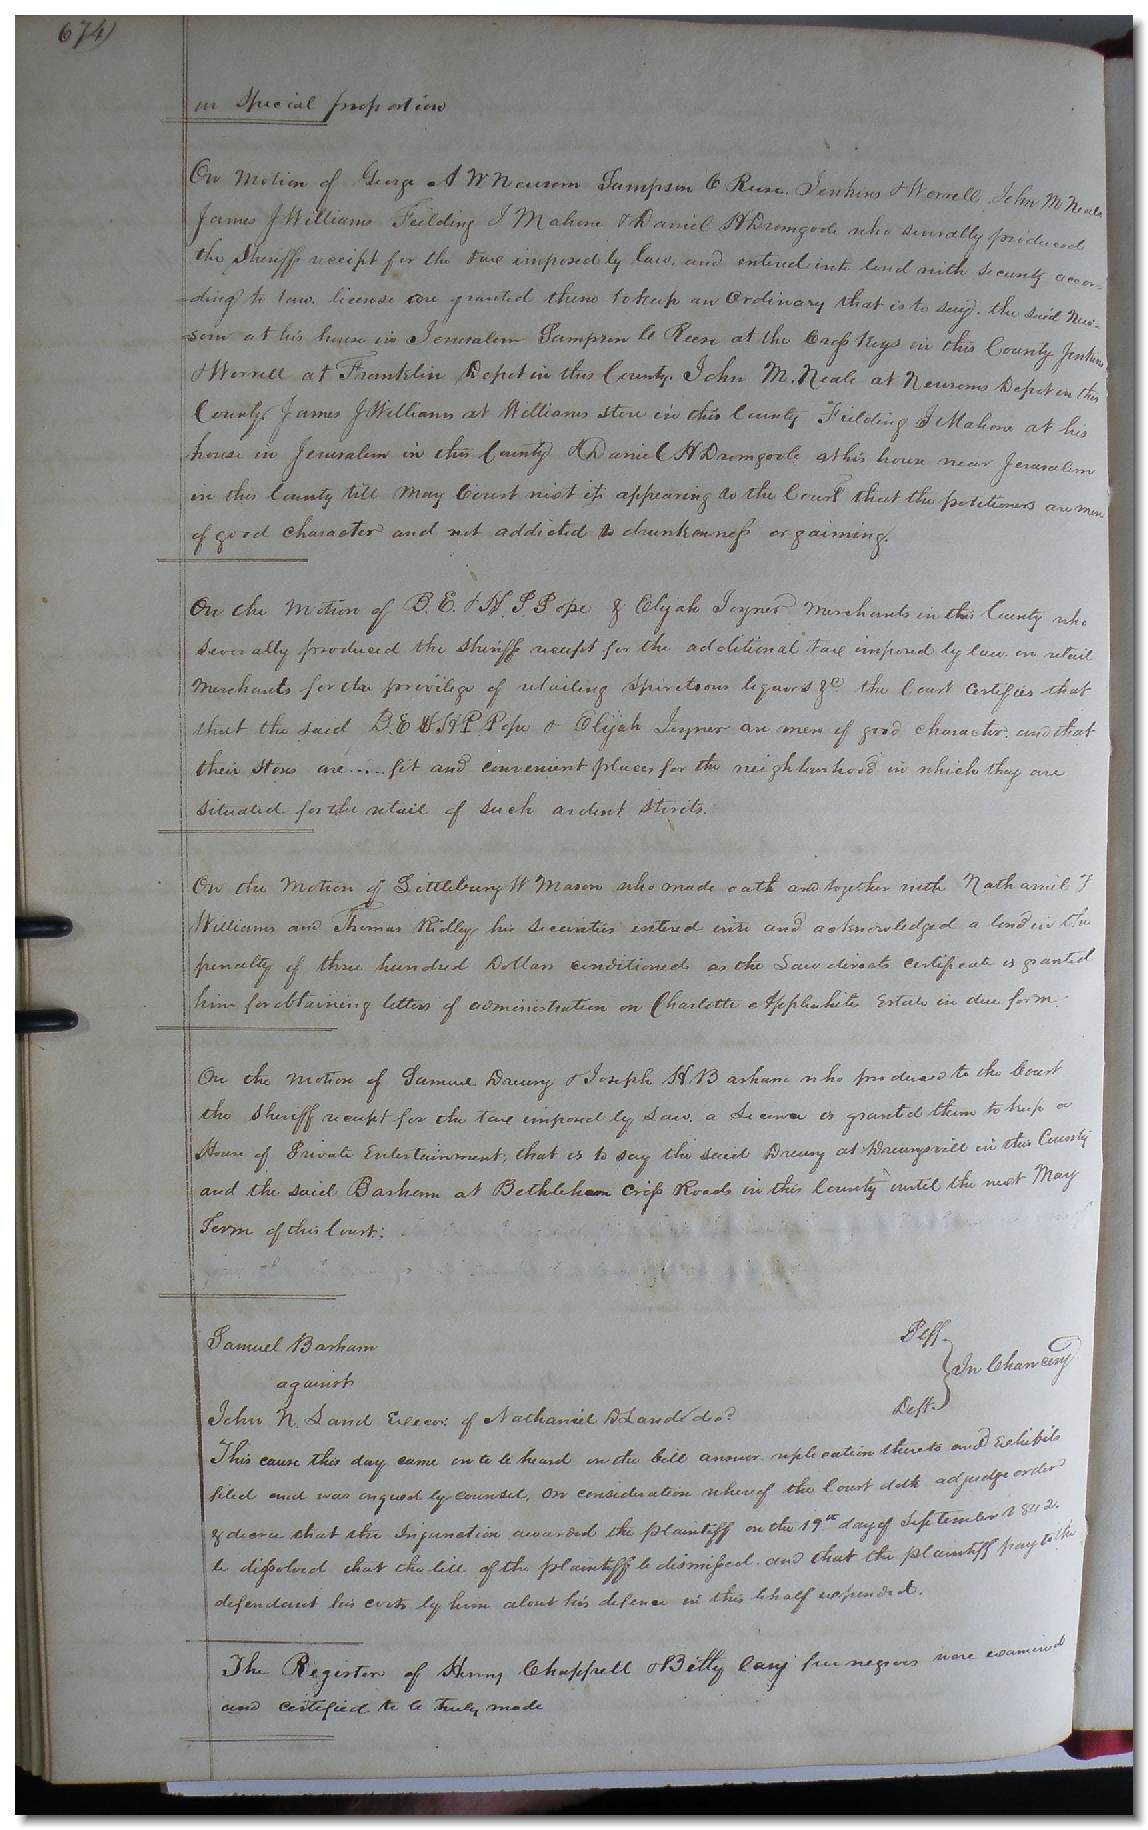 674)
in Special proportion
On Motion of George A W Newsom Sampson C Reese. Jenkins & Worrell, John M Neale
James J Williams Feilding J Mahone & Daniel H Dromgoole who severally produced
the Sheriffs receipt for the tax imposed by law, and entered into bond with security accor-
ding to law. license are granted them to keep an Ordinary that is to say. the said New-
som at his house in Jerusalem Sampson C Reese at the Cross Keys in this County Jenkins
& Worrell at Franklin Depot in this County. John M. Neale at Newsoms Depot in this
County, James J Williams at Williams store in this County Feilding J Mahone at his
house in Jerusalem in this County & Daniel H Dromgoole at his house near Jerusalem
in this County till May Court next it appearing to the Court that the petitioners are men
of good character and not addicted to drunkenness or gaiming.
On the Motion of B. E. & H. P Pope & Elijah Joyner Merchants in this County who
severally produced the sheriff receipt for the additional tax imposed by law on retail
Merchants for the privilege of retailing Spiretuous liquors &c the Court Certifies that
that the said B. E & H P Pope & Elijah Joyner are men of good character, and that
their stores are..... fit and convenient places for the neighbourhood in which they are
situated for the retail of such ardent Spirits.
On the Motion of Littlebury W Mason who made oath and together with Nathaniel F
Williams and Thomas Ridley his securities entered into and acknowledged a bond in the
penalty of three hundred Dollars conditioned as the Law directs certificate is granted
him for obtaining letters of administration on Charlotte Applewhite Estate in due form.
On the motion of Samuel Drewry & Joseph H Barham who produced to the Court
the Sheriff receipt for the tax imposed by Law. a License is granted them to keep a
House of Private Entertainment, that is to say the said Drewry at Drewrysvill in this County
and the said Barham at Bethlehem Cross Roads in this County until the next May
Term of this Court.
Samuel Barham Plff.
against In Chancery
John N. Land Execor. of Nathaniel D Land decd. Deft.
This cause this day came on to be heard on the bill answer replication thereto and Exhibits
filed and was argued by counsel, on consideration whereof the Court doth adjudge order
& decree that the Injunction awarded the plaintiff on the 19th day of September 1842.
be dissolved that the bill of the plaintiff be dismissed. and that the plaintiff pay to the
defendant his costs by him about his defence in this behalf expended.
The Register of Henry Chappell & Betty Cary free negroes were examined
and certified to be truly made